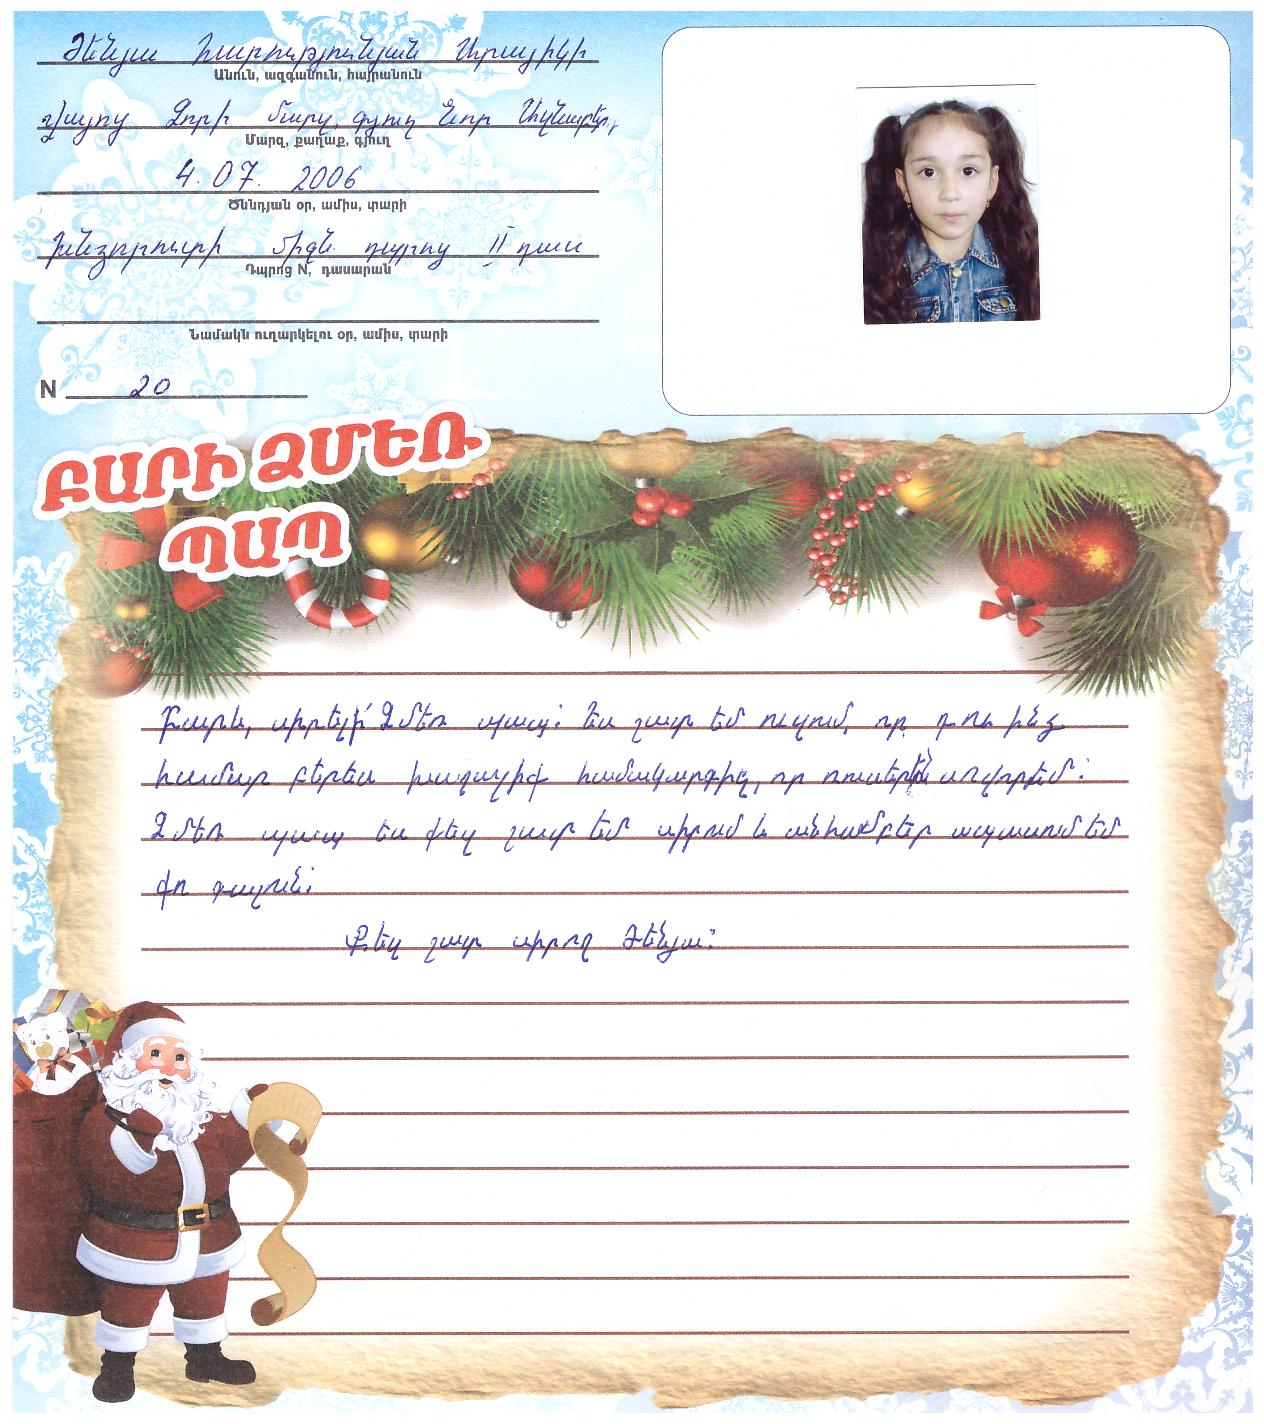 Ժենյա Հարությունյան Արայիկի
Անուն, ազգանուն, հայրանուն
Վայոց Ձորի մարզ, գյուղ Նոր Ազնաբերդ
Մարզ, քաղաք, գյուղ
4. 07. 2006
Ծննդյան օր, ամիս, տարի
Խնձորուտի միջն դպրոց II դաս
Դպրոց N, դասարան
Նամակն ուղարկելու օր, ամիս, տարի
N 20
ԲԱՐԻ ՁՄԵՌ
ՊԱՊ
Բարև, սիրելի՛ Ձմեռ պապ: Ես շատ եմ ուզում, որ դու ինձ
համար բերես խաղալիք համակարգիչ, որ ռուսերեն սովորեմ:
Ձմեռ պապ ես քեզ շատ եմ սիրում և անհամբեր սպասում եմ
քո գալուն:
Քեզ շատ սիրող Ժենյա: